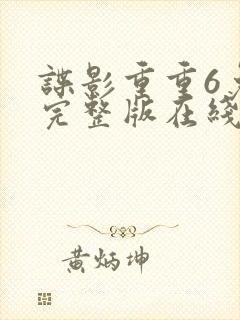 諜影重重6免
完整版在綫
黃炳坤